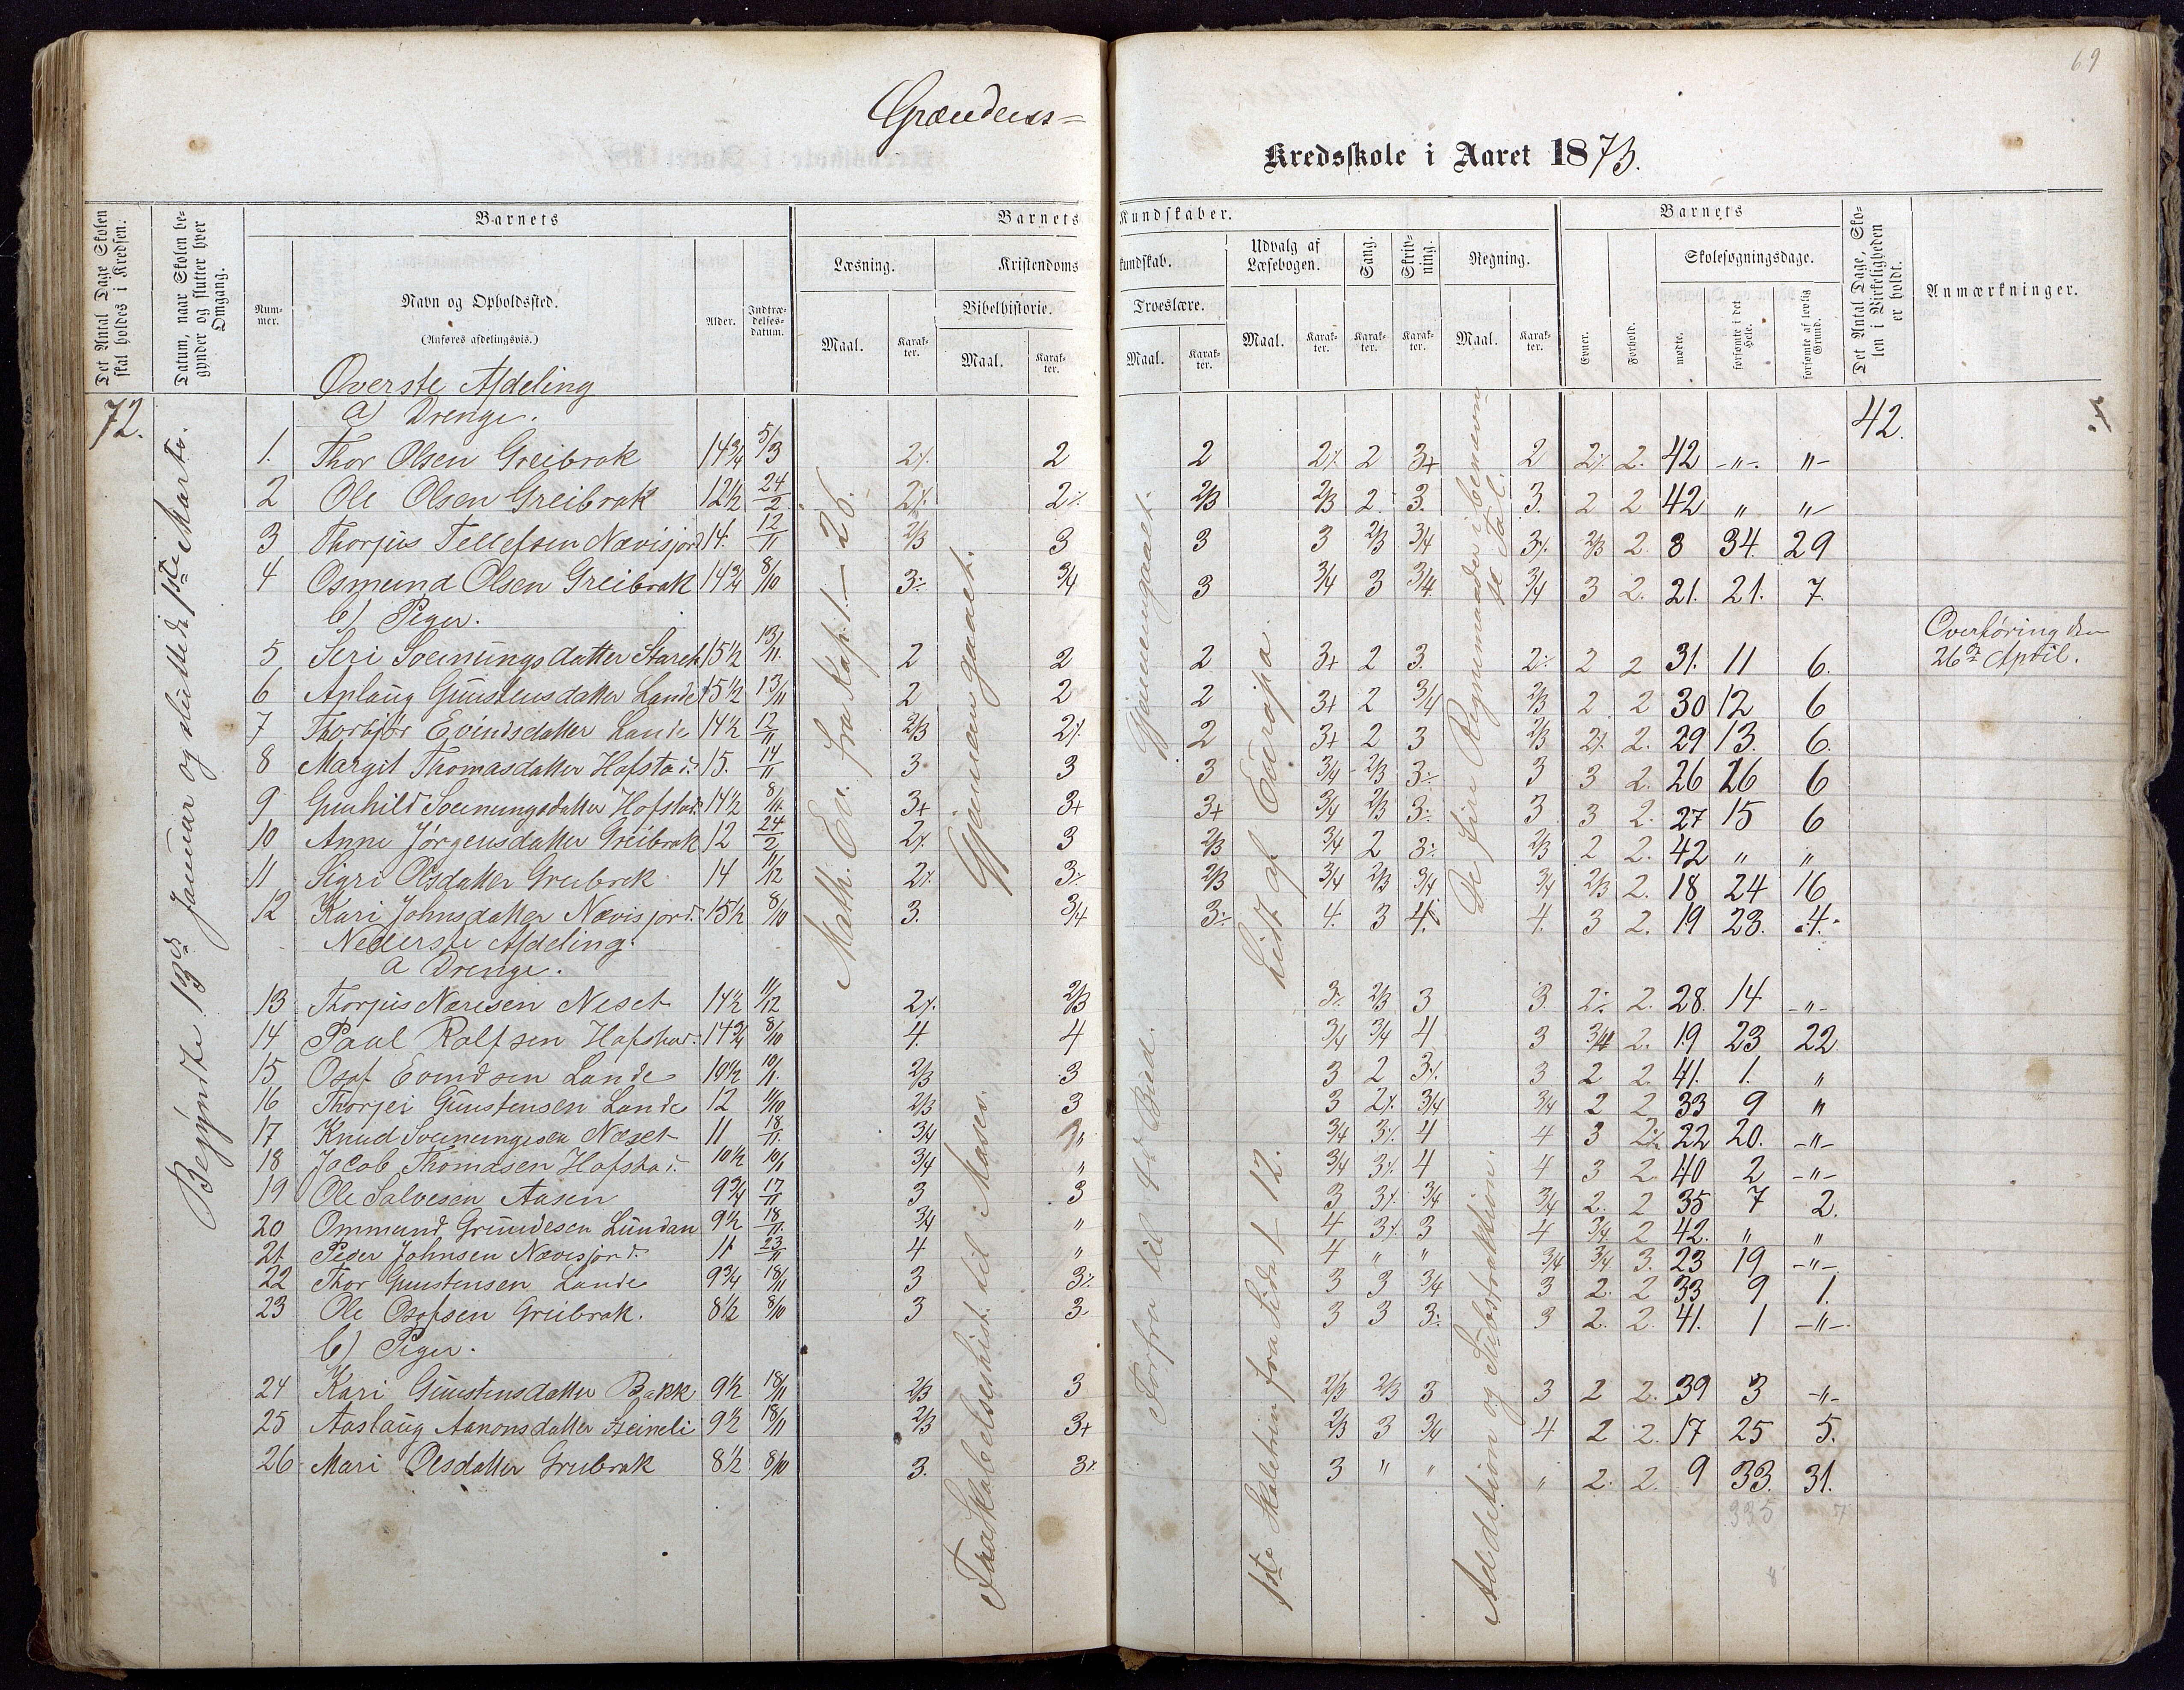 69
Grændens=
Kredsskole i Aaret 1873.
Det Antal Dage Skolen skal holdes i Kredsen.
Datum, naar Skolen begynder og slutter hver Omgang.
Barnets
Nummer.
Navn og Opholdssted.
(Anføres afdelingsvis.)
Alder.
Indtrædelsesdatum.
Barnets Kundskaber.
Læsning.
Kristendomskundskab.
Bibelhistorie.
Troeslære.
Udvalg af Læsebogen.
Sang.
Skrivning.
Regning.
Maal. Karakter. Maal. Karakter. Maal. Karakter. Maal. Karakter. Karakter. Karakter. Maal. Karakter.
Barnets
Evner.
Forhold.
Skolesøgningsdage.
mødte.
forsømte i det Hele.
forsømte af lovlig Grund.
Det Antal Dage, Skolen i Virkeligheden er holdt.
Anmærkninger.
72.
Begyndte 13de Januar og sluttede 1ste Marts.
Math. Ev. fra Kap. 1 – 26.
Gjennemgaaet.
Gjennemgaaet.
Lidt af Europa.
De fire Regnemaader i benævnte Tal.
42.
Overste Afdeling
a) Drenge.
1. Thor Olsen Greibrok 14 3/4 5/3 2% 2 2 2% 2 3+ 2 2% 2. 42 -"-. "-
2 Ole Olsen Greibrok 12 1/2 24/2 2% 2% 2/3 2/3 2. 3. 3. 2 2 42 " "-
3 Thorjus Tellefsen Nævisjord 14. 12/11 2/3 3 3 3 2/3 3/4 3% 2/3 2. 8 34. 29
4 Osmund Olsen Greibrok 14 3/4 8/10 3% 3/4 3 3/4 3 3/4. 3/4 3 2. 21. 21. 7.
b) Piger.
Overføring den 26de April.
5 Siri Soeinungsdatter Starek 15 1/2 13/11. 2 2 2 3+ 2 3. 2% 2 2 31. 11 6.
6 Anlaug Gunstensdatter Lande 15 1/2 13/11 2 2 2 3+ 2 3/4 2/3 2 2 30 12 6
7 Thorbjør Evindsdatter Lande 14 1/2 12/11 2/3 2% 2 3+ 2 3 2/3 2% 2. 29 13. 6.
8 Margit Thomasdatter Hofstad. 15. 14/11 3 3 3 3/4 2/3 3% 3 3 2. 26 26 6
9 Gunhild Soeinungsdatter Hofstad. 14 1/2 8/11. 3+ 3+ 3+ 3/4 2/3 3% 3 3 2. 27 15 6
10 Anne Jørgensdatter Greibrok 12 24/2 2% 3 2/3 3/4 2 3% 2/3 2 2. 42 " "
11 Sigri Olsdatter Greibrok 14 11/12 2% 3% 2/3 3/4 2/3 3/4 3/4 2/3 2. 18 24 16
12 Kari Johnsdatter Nævisjord. 15 1/2 8/10 3. 3/4 3% 4. 3 4. 4. 3 2. 19 23. 4.
Nederste Afdeling.
a Drenge.
Fra Skabelseshist. til Moses.
Forfra til 4de Bud.
1ste Skoletrin fra Side 1 – 12.
Addition og Substraktion.
13 Thorjus Neresen Neset 14 1/2 11/12 2% 2/3 3% 2/3 3 3. 2% 2. 28. 14 -"-
14 Paal Rolfsen Hofstad. 14 3/4 8/10 4. 4 3/4 3/4 4 3 3/4 2. 19 23 22
15. Osof Evindsen Lande 10 1/2 10/1. 2/3 3 3 2 3% 3 2 2. 41. 1. "
16 Thorjei Gunstensen Lande 12 11/10 2/3 3 3 2% 3/4 3/4 2 2 33 9 "
17 Knud Soeinungesen Næset 11 18/11. 3/4 " 3/4 3% 4 4 3 2% 22 20. -"-
18 Jacob Thomasen Hofstad. 10 1/2 10/1 3/4 " 3/4 3% 4 4 3 2 40 2 -"-
19 Ole Salvesen Aasen 9 3/4 17/11 3 3 3 3% 3/4 3/4 2. 2 35 7 2.
20 Ommund Grundesen Lundan 9 1/2 18/11. 3/4 " 4 3% 3 4 3/4 2 42. " "
21. Peder Johnsen Nævisjord. 11 23/11 4 " 4 " " 3/4 3/4 3. 23 19 -"-
22 Thor Gunstensen Lande 9 3/4 18/11 3 3% 3 3 3/4 3 2. 2 33 9 1.
23 Ole Osofsen Greibrok. 8 1/2 8/10 3 3 3 3 3% 3 2. 2. 41. 1 -"-
b) Piger.
24 Kari Gunstensdatter Bakk 9 1/2 18/11 2/3 3 2/3 2/3 3 3 2 2. 39 3 -"-
25 Aaslaug Aanonsdatter Heineli 9 1/2 18/11 2/3 3+ 2/3 3 3/4 4 2 2. 17 25 5.
26 Mari Olsdatter Greibrok 8 1/2 8/10 3. 3% 3 " " " 2. 2. 9 33. 31.
335